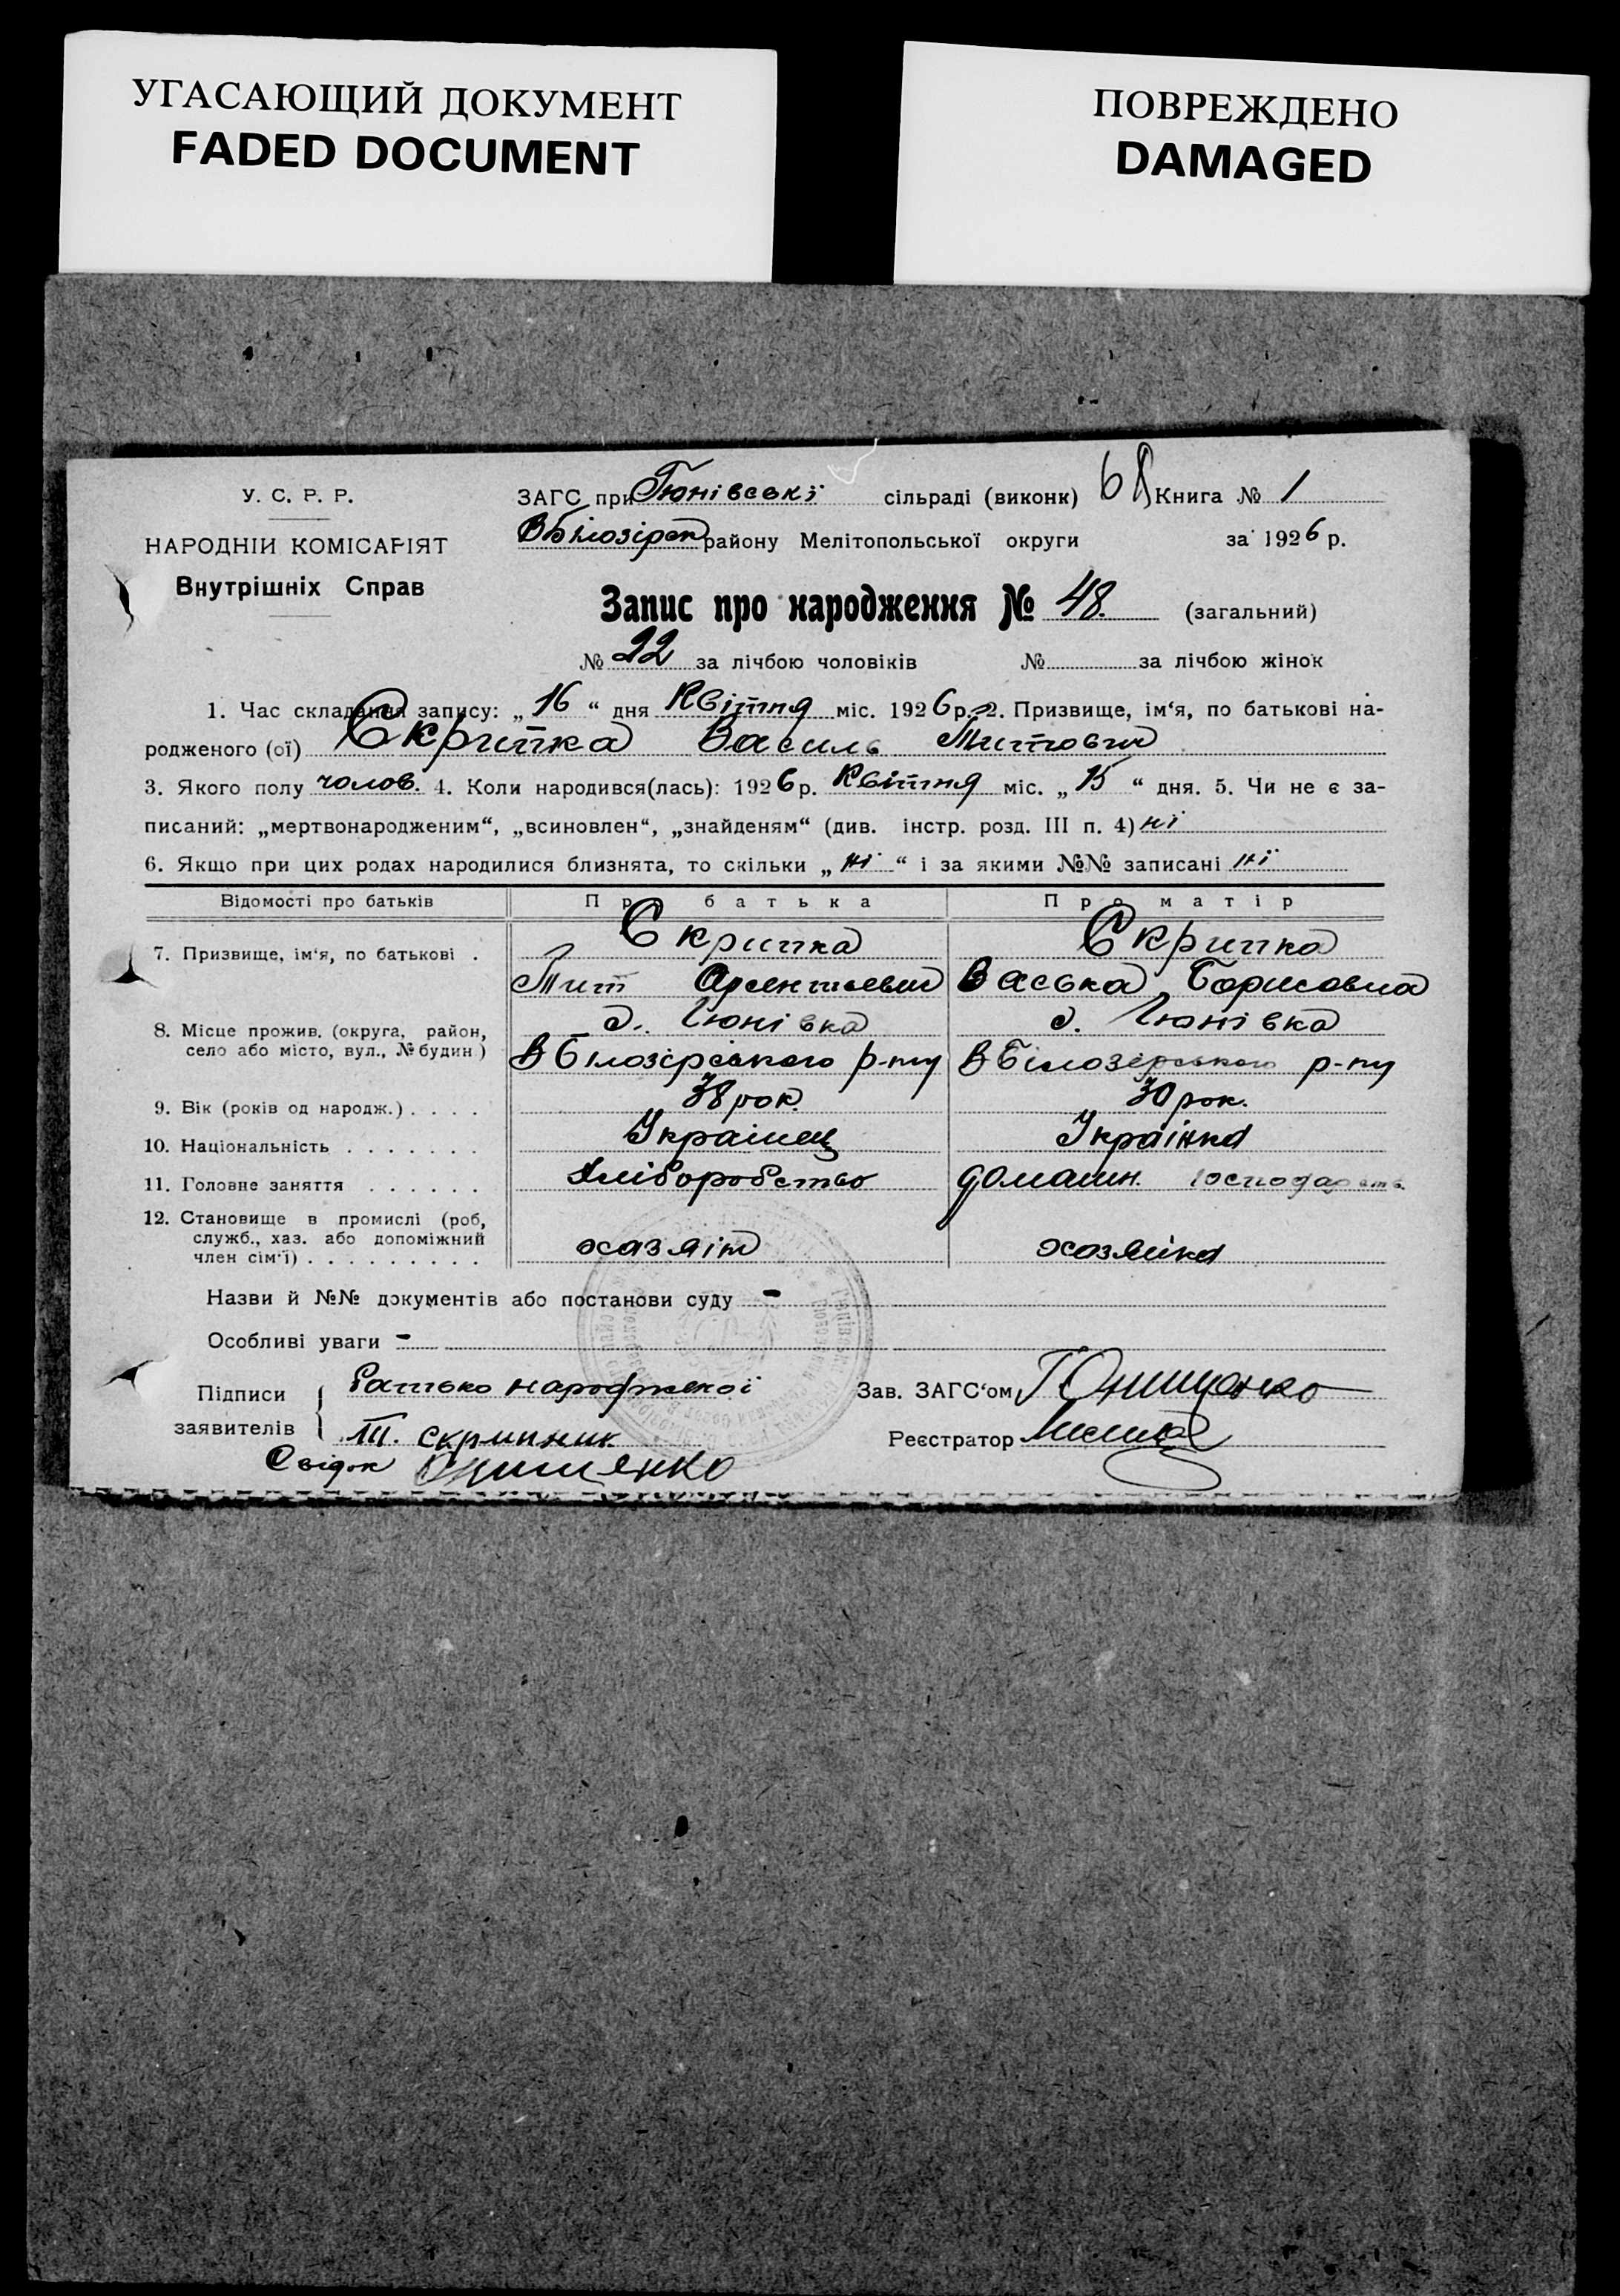 УГАСАЮЩИЙ ДОКУМЕНТ
FADED DOCUMENT
ПОВРЕЖДЕНО
DAMAGED
У. С. Р. Р.
НАРОДНІЙ КОМІСАРІЯТ
Внутрішніх Справ
ЗАГС при Гюнівські сільраді (виконк) 68 Книга № 1
ВБілозірск району Мелітопольської округи за 1926 р.
Запис про народження № 48. (загальний)
№ 22 за лічбою чоловіків № за лічбою жінок
1. Час складання запису: „16“ дня Квітня міс. 1926 р. 2. Призвище, ім‘я, по батькові на-
родженого (ої) Скрипка Василь Титович
3. Якого полу чолов. 4. Коли народився(лась): 1926 р. Квітня міс. „15“ дня. 5. Чи не є за-
писаний: „мертвонародженим“, „всиновлен“, „знайденям“ (див. інстр. розд. III п. 4) ні
6. Якщо при цих родах народилися близнята, то скільки „ні“ і за якими №№ записані ні
Відомості про батьків Про батька Про матір
7. Призвище, ім‘я, по батькові . Скрипка Скрипка
Тит Арентьевич Васька Борисовна
8. Місце прожив. (округа, район, с. Гюнівка с. Гюнівка
село або місто, вул., № будин.) ВБілозірського р-ну ВБілозерського р-ну
9. Вік (років од народж.) . . . . 38 рок. 30 рок.
10. Національність . . . . . . . Українец Українка
11. Головне заняття . . . . . . Хліборобство домашн. господарств.
12. Становище в промислі (роб,
служб., хаз. або допоміжний
член сім‘ї) . . . . . . . . . хазяін хозяйка
Назви й №№ документів або постанови суду -
Особливі уваги -
Підписи заявителів
Батько народженої
Т. скрипник
Свідок Онищенко
Зав. ЗАГС‘ом Онищенко
Реєстратор